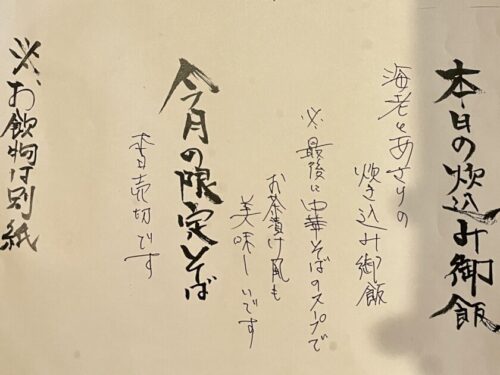 本日の炊込み御飯
海老とあさりの
炊き込み御飯
※最後に中華そばのスープで
お茶漬け風も
美味しいです
今月の限定そば
本日売切です
※お飲物は別紙